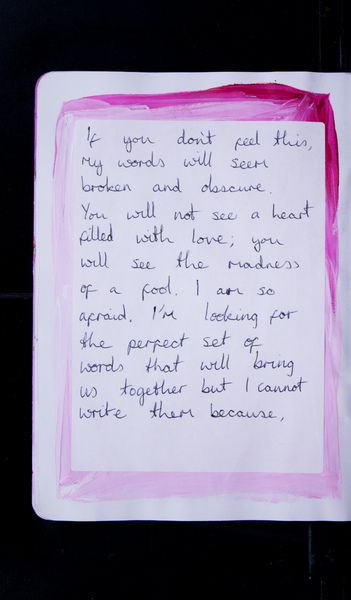 If you don't feel this,
My words will seem
broken and obscure.
You will not see a heart
filled with love; you
will see the madness
of a fool. I am so
afraid. I'm looking for
the perfect set of
words that will bring
us together but I cannot
write them because,